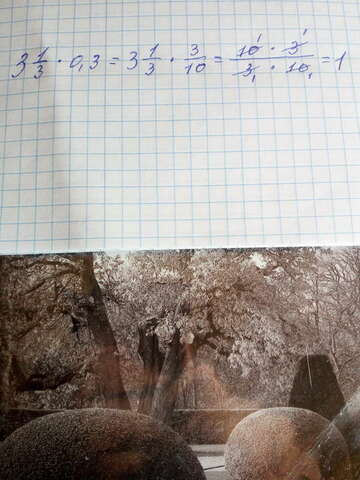 3 1/3 · 0,3 = 3 1/3 · 3/10 = 10 · 3 / 3 · 10 = 1